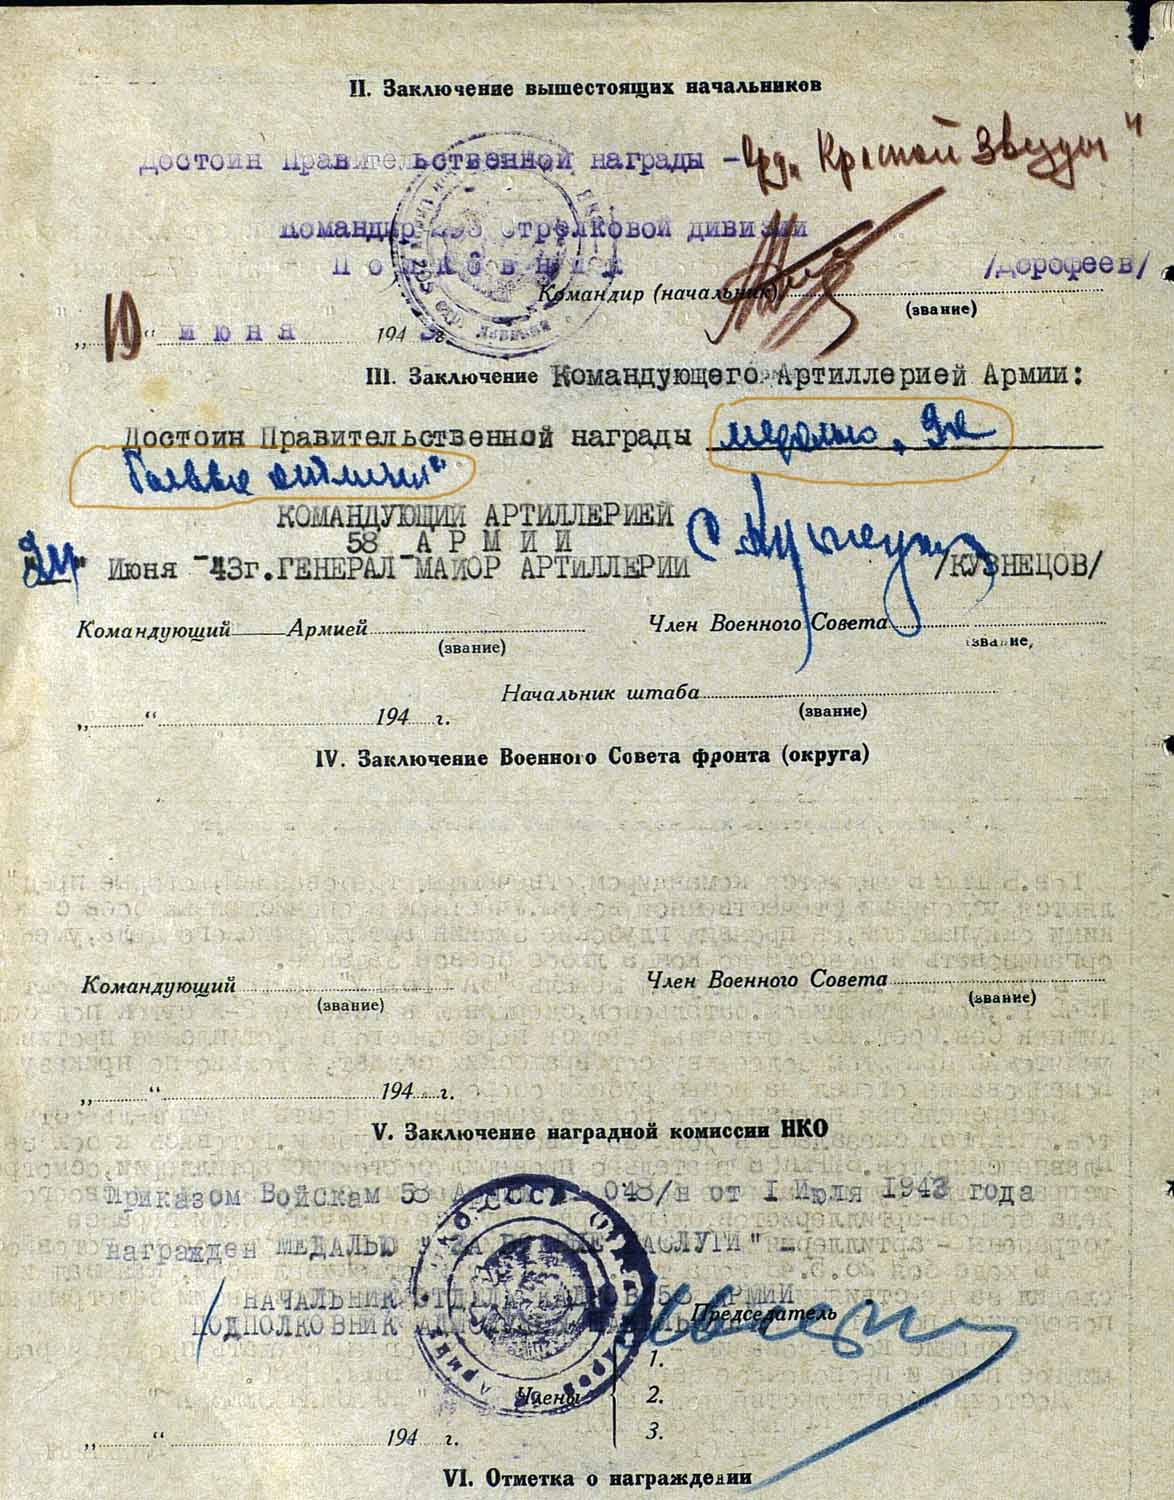 II. Заключение вышестоящих начальников
Достоин Правительственной награды - орд. Красной Звезды"
Командир 295 Стрелковой дивизии
Полковник /Дорофеев/
Командир (начальник)
(звание)
„10" июня 1943г.
III. Заключение Командующего Артиллерией Армии:
Достоин Правительственной награды медалью „За
боевые
КОМАНДУЮЩИЙ АРТИЛЛЕРИЕЙ
58 АРМИИ
"24" Июня -43г. ГЕНЕРАЛ-МАЙОР АРТИЛЛЕРИИ /КУЗНЕЦОВ/
Командующий Армией Член Военного Совета
(звание) (звание)
Начальник штаба
(звание)
„ " 194 г.
IV. Заключение Военного Совета фронта (округа)
Командующий Член Военного Совета
(звание) (звание)
„ " 194 г.
V. Заключение наградной комиссии НКО
Приказом Войскам 58 Армии 048/н от 1 Июля 1943 года
награжден МЕДАЛЬЮ "ЗА БОЕВЫЕ ЗАСЛУГИ" -
НАЧАЛЬНИК ОТДЕЛА КАДРОВ 58 АРМИИ
Председатель
ПОДПОЛКОВНИК АДМ
1.
Члены 2.
3.
„ " 194 г.
VI. Отметка о награждении